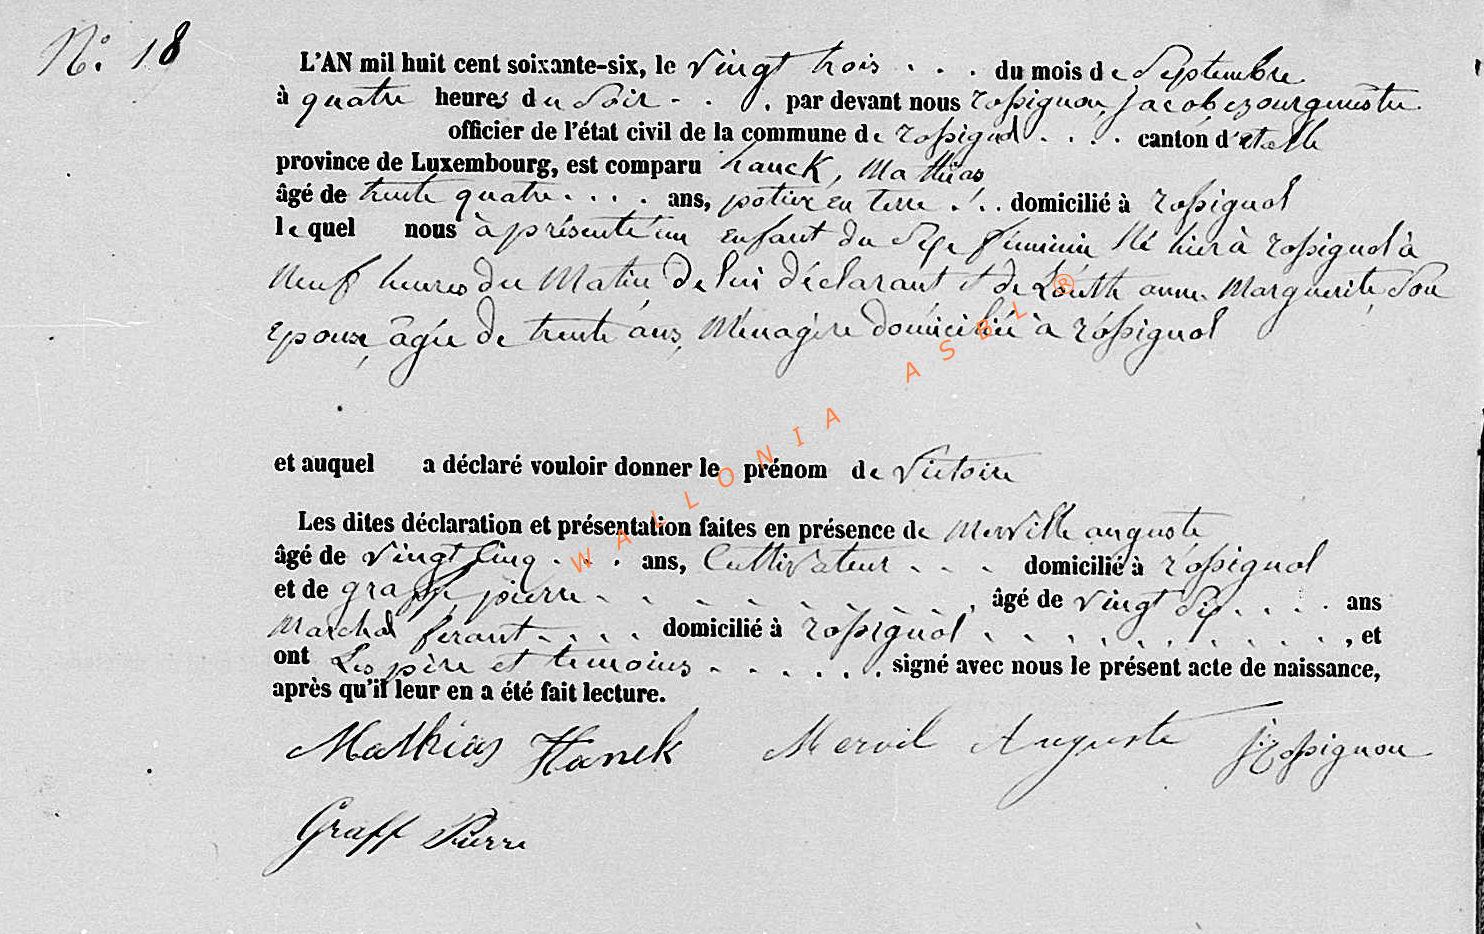 N° 18
L'AN mil huit cent soixante-six, le vingt trois . . . du mois de Septembre
à quatre heures du Soir - . . . par devant nous rossignon, Jacob Bourguemestre
officier de l'état civil de la commune de rossignol . . . . canton d'etalle
province de Luxembourg, est comparu hanck, Mathias
âgé de trente quatre . . . . ans, potier en terre . . . domicilié à rossignol
lequel nous à présenté un Enfant du Sexe féminin Né hier à rossignol à
Neuf heures du Matin, de lui déclarant et de Louth anne Marguerite, Son
Epouse, âgée de trente ans, Ménagère domiciliée à rossignol
et auquel a déclaré vouloir donner le prénom de Victoire
Les dites déclaration et présentation faites en présence de Merville auguste
âgé de vingt Cinq . . . ans, Cultivateur . . . domicilié à rossignol
et de graff, pierre - - - - - - - - - , âgé de vingt Six . . . . ans
Marchal ferant - . . . domicilié à rossignol . . . . . . . . . . , et
ont Les père et temoins - - . . . . signé avec nous le présent acte de naissance,
après qu'il leur en a été fait lecture.
Mathias Hanck Mervil Auguste J Rossignon
Graff Pierre
WALLONIA ASBL ®